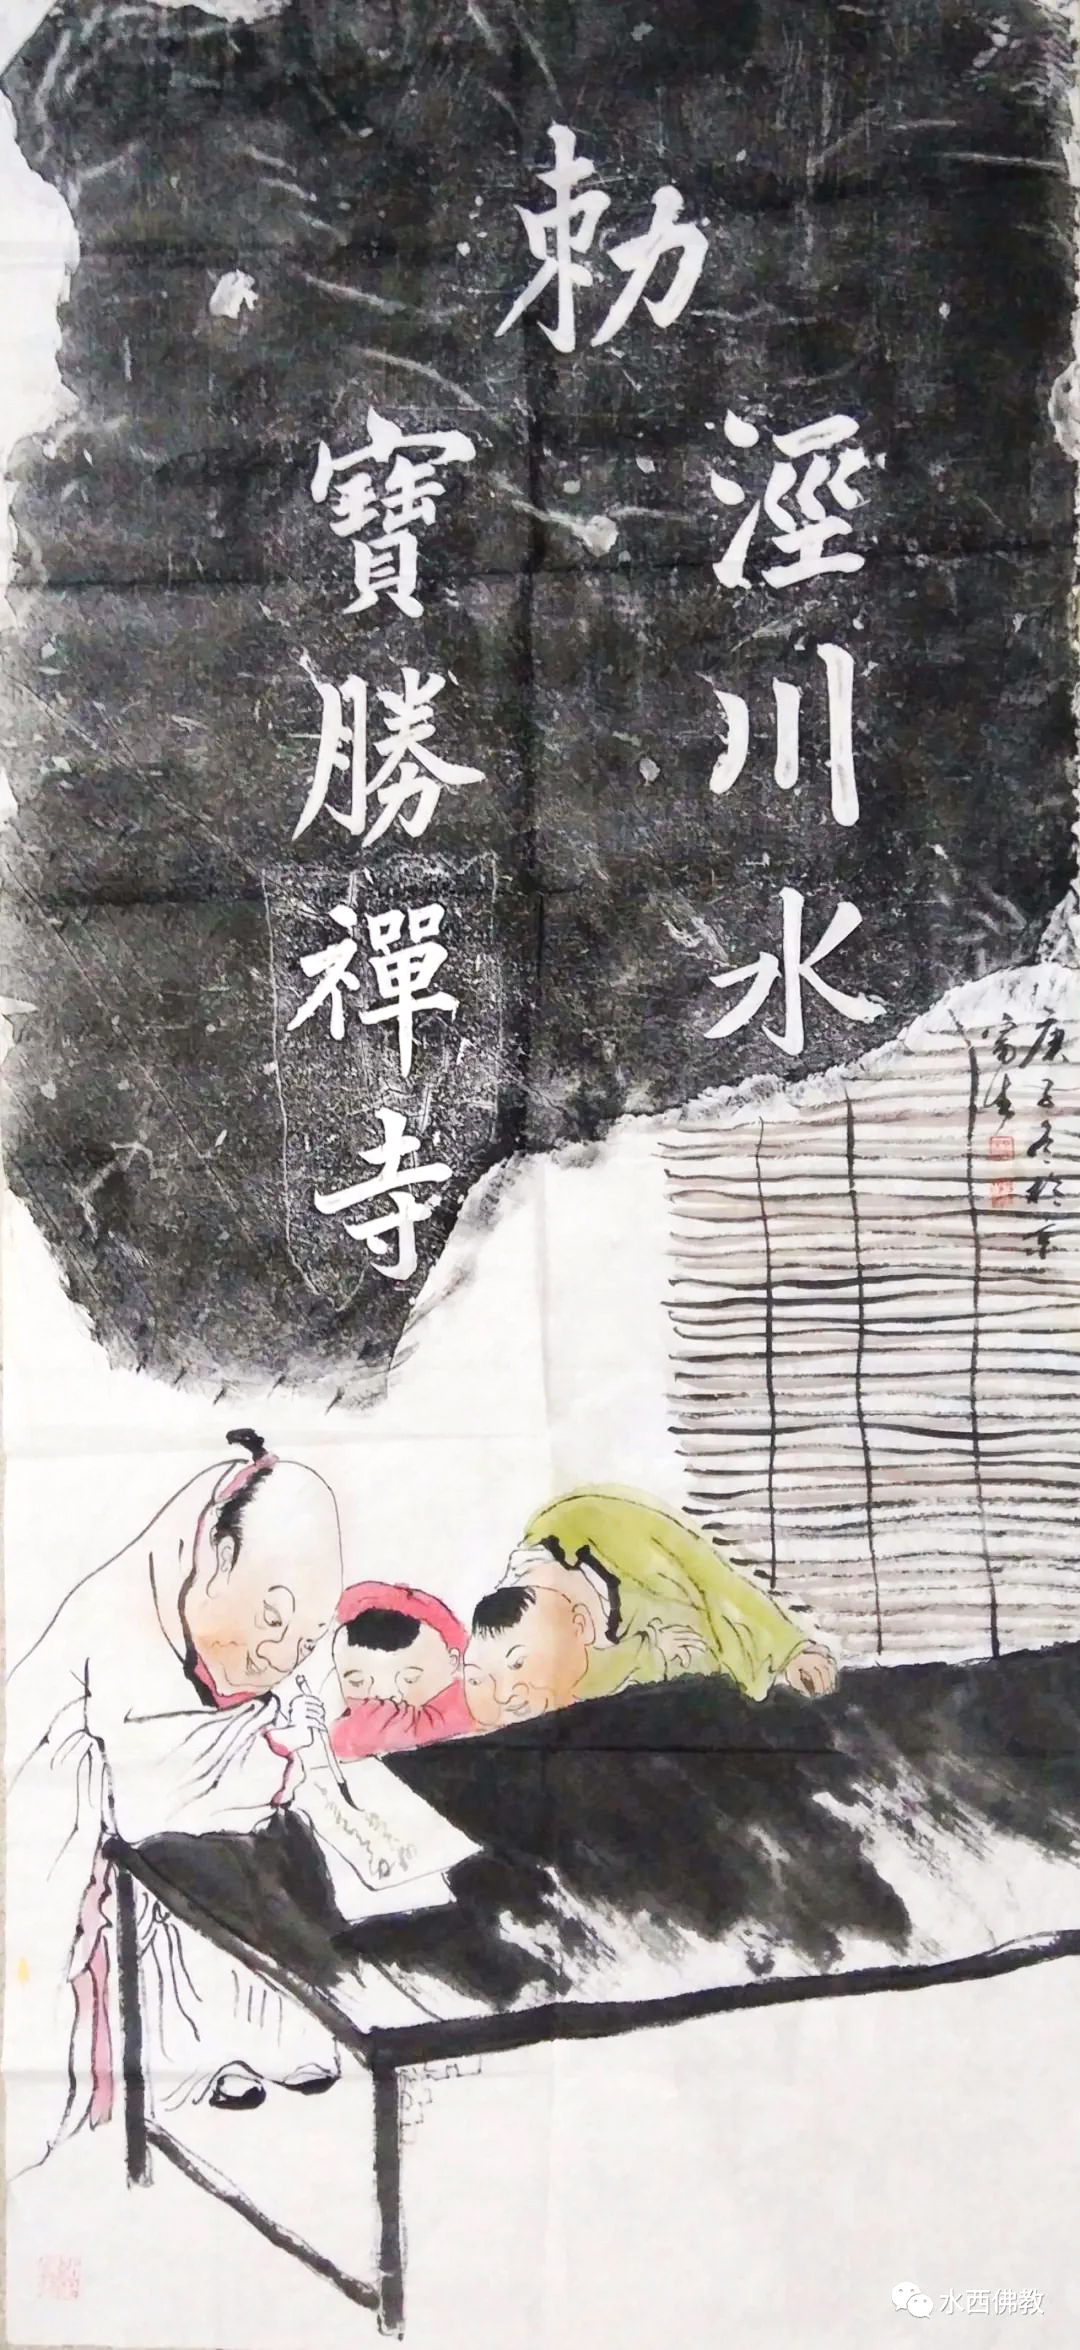 勅
涇川水
寶勝禪寺
庚子冬於京
水西佛教